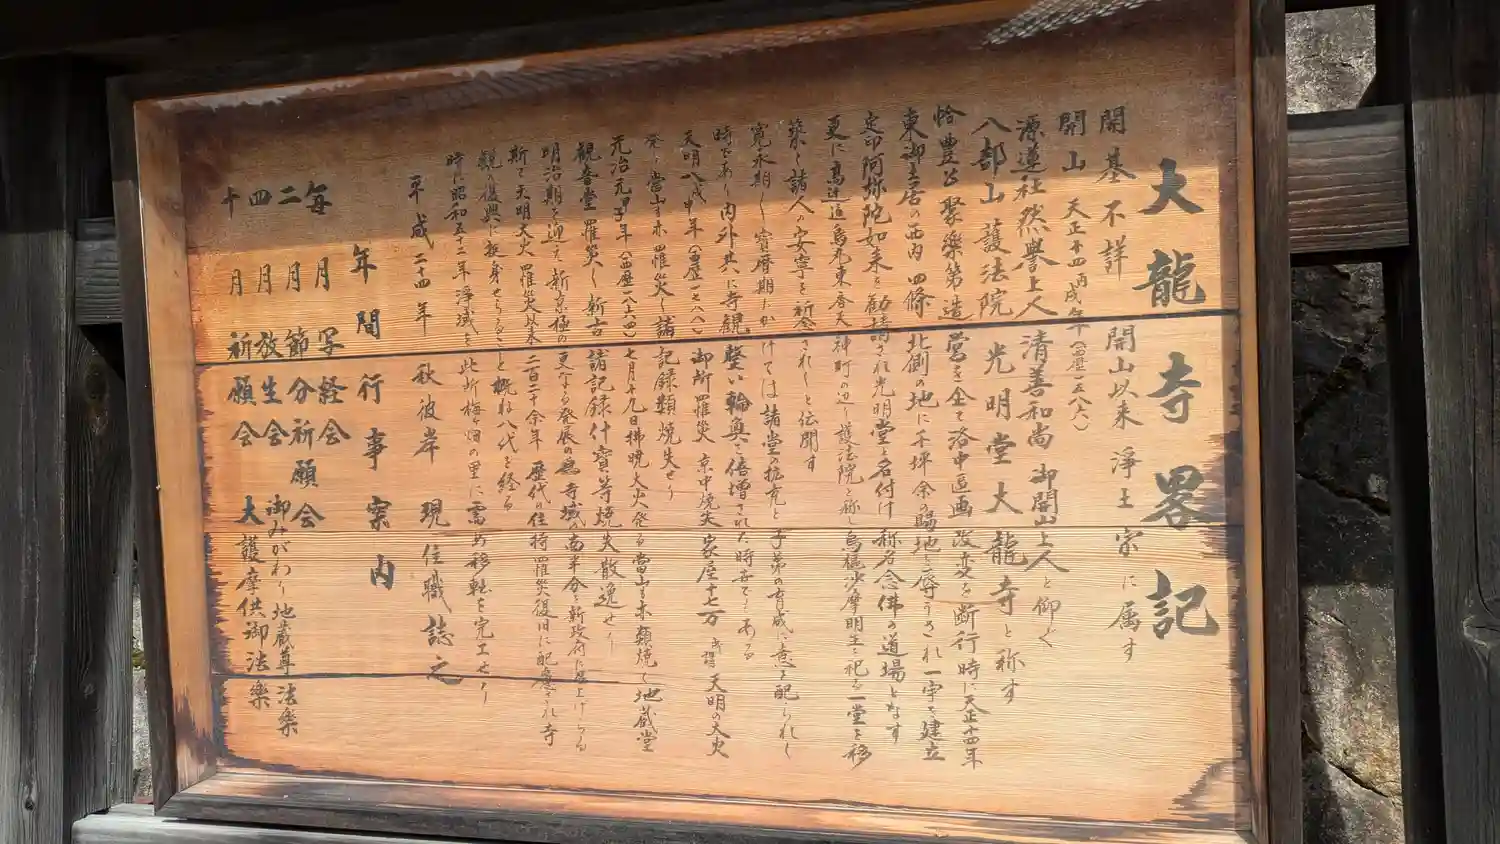 大龍寺畧記
開基不詳　開山以来 浄土宗に属す
開山　天正十四丙戌年（西歴一五八六）
源蓮社然譽上人 清善和尚 御開山上人と仰ぐ
八部山護法院 光明堂大龍寺と称す
恰豊公聚樂第造營を企て洛中区画改変を断行時に天正十四年
東御土居の西内 四條北側の地に千坪余の賜地を辱うされ一宇を建立
定印阿弥陀如来を勧請され光明堂と名付け 称名念佛の道場となす
更に高辻通烏丸東居天神町の辺り護法院と称し烏樞沙摩明王を祀る一堂を移
築し諸人の安寧を祈念されしと伝聞す
寛永期し寶暦期にかけては諸堂の拡充と子弟の育成に意を配られし
時であり内外共に寺観整い輪奐を倍増された時世である
天明八戊申年（西歴一七八八）御所罹災 京中焼失家屋十七万 天明の大火
発し當山も亦罹災し諸記録類焼失せり
元治元甲子年（西歴一八六四）七月十九日拂暁大火発る當山も亦類焼し地蔵堂
観音堂罹災し新古諸記録什寶等焼失散逸せり
明治期を迎えて新京極の更なる発展の為寺域の南半分を新政府に召上げらる
斯て天明大火罹災以来二百二十余年 歴代の住持罹災復旧に配慮され寺
観の復興に挺身せらるること概ね八代を経る
時に昭和五十二年浄域を此所梅ヶ畑の里に需め移転を完工せり
平成二十四年 秋彼岸 現住職誌之
年間行事案内
毎月 写経会
二月 節分祈願会
四月 放生会 御みがわり地蔵尊法樂
十月 祈願会 大護摩供御法樂